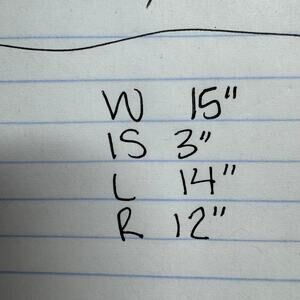 W 15"
IS 3"
L 14"
R 12"